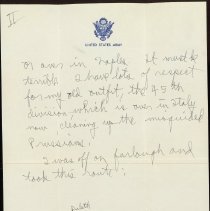 II
UNITED STATES ARMY
or over in Naples. It must be
terrible. I have lots of respect
for my old outfit, the 45th
division which is over in Italy
now cleaning up the misguided
Prussians.
I was off on furlough and
took this route:
Duluth